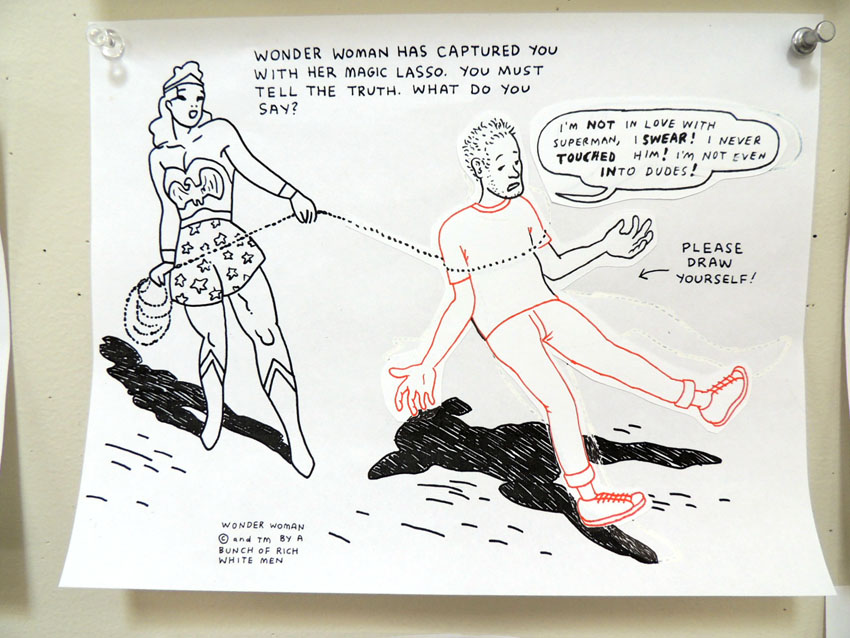 WONDER WOMAN HAS CAPTURED YOU
WITH HER MAGIC LASSO. YOU MUST
TELL THE TRUTH. WHAT DO YOU
SAY?
I'M NOT IN LOVE WITH
SUPERMAN, I SWEAR! I NEVER
TOUCHED HIM! I'M NOT EVEN
INTO DUDES!
PLEASE
DRAW
YOURSELF!
WONDER WOMAN
© and TM BY A
BUNCH OF RICH
WHITE MEN